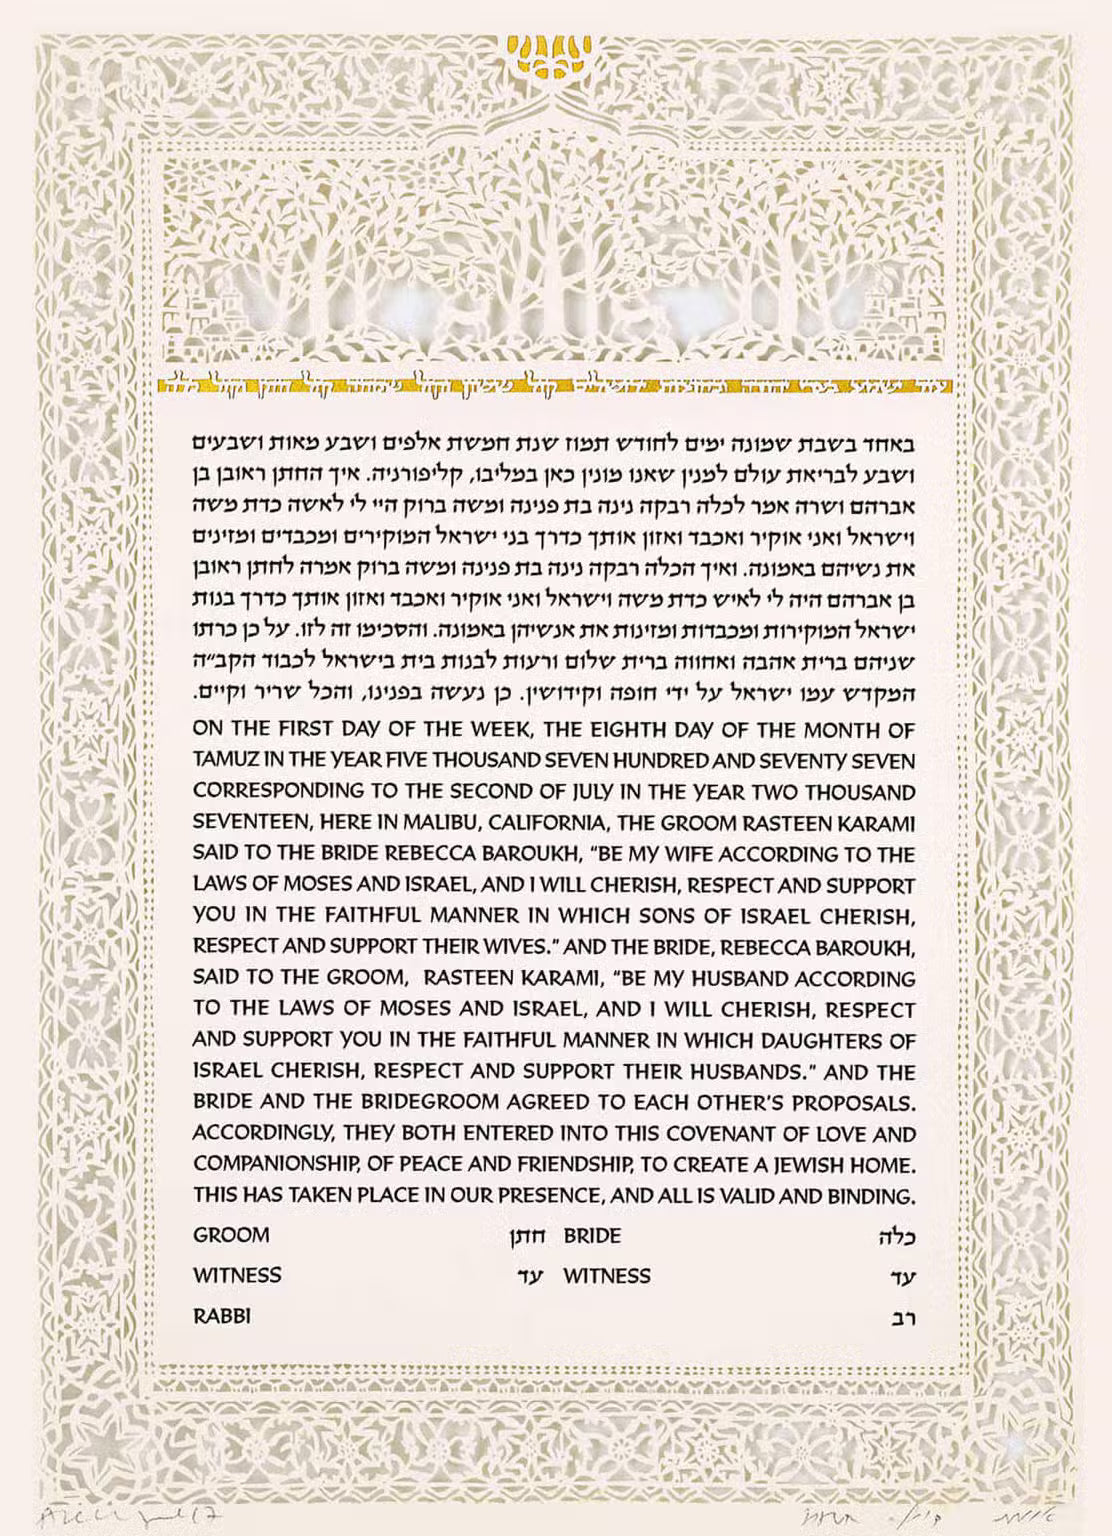 עוד ישמע בערי יהודה ובחוצות ירושלים קול ששון וקול שמחה קול חתן וקול כלה
באחד בשבת שמונה ימים לחודש תמוז שנת חמשת אלפים ושבע מאות ושבעים
ושבע לבריאת עולם למנין שאנו מונין כאן במליבו, קליפורניה. איך החתן ראובן בן
אברהם ושרה אמר לכלה רבקה נינה בת פנינה ומשה ברוק היי לי לאשה כדת משה
וישראל ואני אוקיר ואכבד ואזון אותך כדרך בני ישראל המוקירים ומכבדים ומזינים
את נשיהם באמונה. ואיך הכלה רבקה נינה בת פנינה ומשה ברוק אמרה לחתן ראובן
בן אברהם היה לי לאיש כדת משה וישראל ואני אוקיר ואכבד ואזון אותך כדרך בנות
ישראל המוקירות ומכבדות ומזינות את אנשיהן באמונה. והסכימו זה לזו. על כן כרתו
שניהם ברית אהבה ואחווה ברית שלום ורעות לבנות בית בישראל לכבוד הקב״ה
המקדש עמו ישראל על ידי חופה וקידושין. כן נעשה בפנינו, והכל שריר וקיים.
ON THE FIRST DAY OF THE WEEK, THE EIGHTH DAY OF THE MONTH OF
TAMUZ IN THE YEAR FIVE THOUSAND SEVEN HUNDRED AND SEVENTY SEVEN
CORRESPONDING TO THE SECOND OF JULY IN THE YEAR TWO THOUSAND
SEVENTEEN, HERE IN MALIBU, CALIFORNIA, THE GROOM RASTEEN KARAMI
SAID TO THE BRIDE REBECCA BAROUKH, “BE MY WIFE ACCORDING TO THE
LAWS OF MOSES AND ISRAEL, AND I WILL CHERISH, RESPECT AND SUPPORT
YOU IN THE FAITHFUL MANNER IN WHICH SONS OF ISRAEL CHERISH,
RESPECT AND SUPPORT THEIR WIVES.” AND THE BRIDE, REBECCA BAROUKH,
SAID TO THE GROOM, RASTEEN KARAMI, “BE MY HUSBAND ACCORDING
TO THE LAWS OF MOSES AND ISRAEL, AND I WILL CHERISH, RESPECT
AND SUPPORT YOU IN THE FAITHFUL MANNER IN WHICH DAUGHTERS OF
ISRAEL CHERISH, RESPECT AND SUPPORT THEIR HUSBANDS.” AND THE
BRIDE AND THE BRIDEGROOM AGREED TO EACH OTHER’S PROPOSALS.
ACCORDINGLY, THEY BOTH ENTERED INTO THIS COVENANT OF LOVE AND
COMPANIONSHIP, OF PEACE AND FRIENDSHIP, TO CREATE A JEWISH HOME.
THIS HAS TAKEN PLACE IN OUR PRESENCE, AND ALL IS VALID AND BINDING.
GROOM חתן BRIDE כלה
WITNESS עד WITNESS עד
RABBI רב